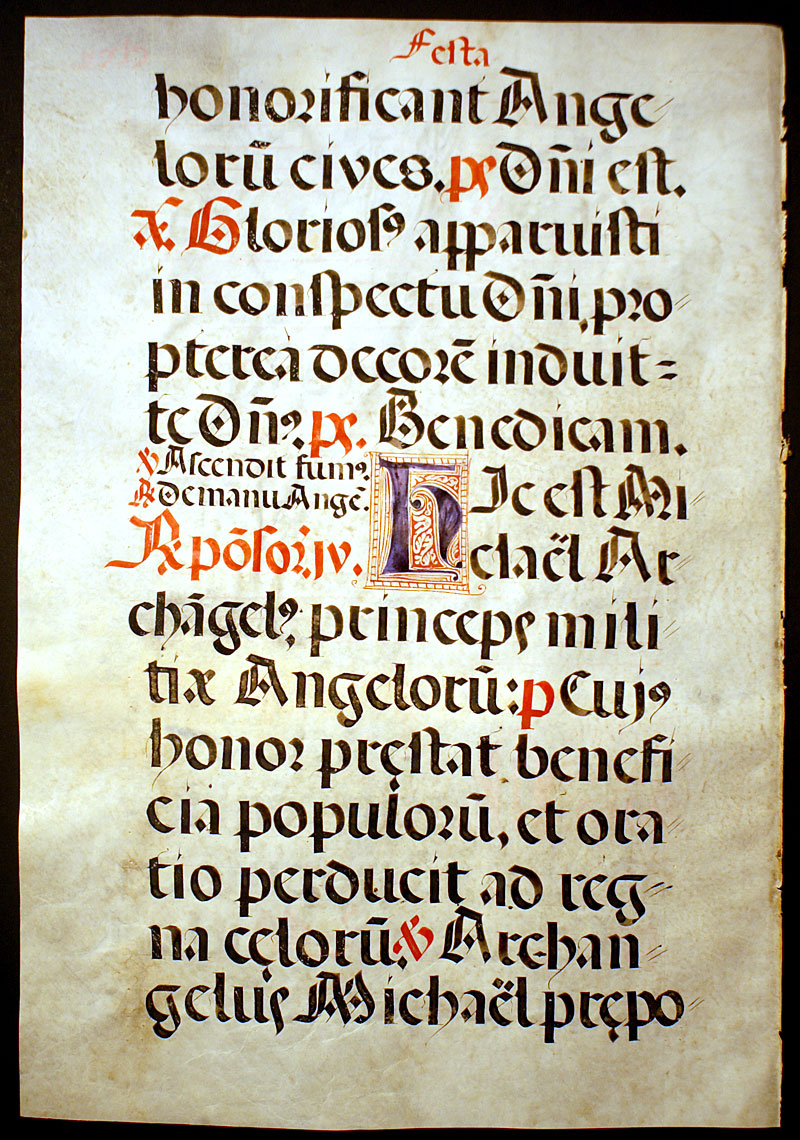 Festa
honorificant Ange
lorū cives. ps Dñi est.
Añ. Gloriosꝰ apparuisti
in conspectu Dñi, pro
pterea decorē induit
te Dñꝰ. ps. Benedicam.
℣ Ascendit fumꝰ
℟ De manu Angē.
℟ põsor. iv.
Hic est Mi
chaël Ar
chãgelꝰ, princeps mili
tiæ Angelorū: p Cujꝰ
honor pręstat benefi
cia populorū, et ora
tio perducit ad reg
na cęlorū. ℣ Archan
gelus Michaël prępo